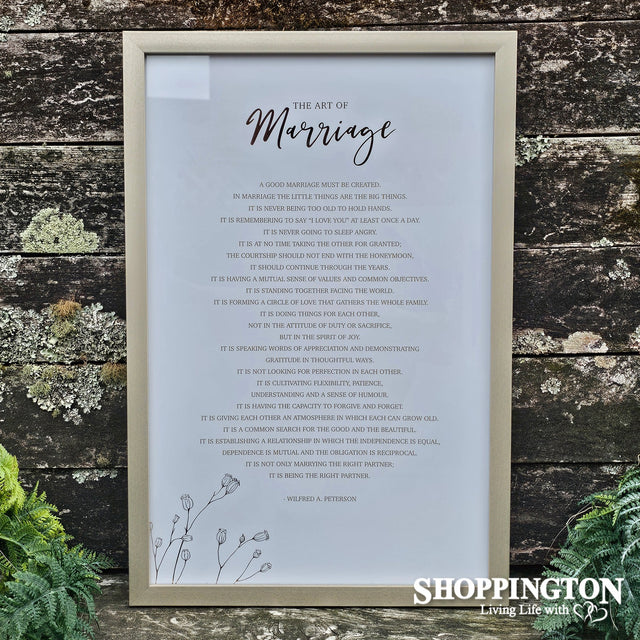 THE ART OF
Marriage
A GOOD MARRIAGE MUST BE CREATED.
IN MARRIAGE THE LITTLE THINGS ARE THE BIG THINGS.
IT IS NEVER BEING TOO OLD TO HOLD HANDS.
IT IS REMEMBERING TO SAY "I LOVE YOU" AT LEAST ONCE A DAY.
IT IS NEVER GOING TO SLEEP ANGRY.
IT IS AT NO TIME TAKING THE OTHER FOR GRANTED;
THE COURTSHIP SHOULD NOT END WITH THE HONEYMOON,
IT SHOULD CONTINUE THROUGH THE YEARS.
IT IS HAVING A MUTUAL SENSE OF VALUES AND COMMON OBJECTIVES.
IT IS STANDING TOGETHER FACING THE WORLD.
IT IS FORMING A CIRCLE OF LOVE THAT GATHERS THE WHOLE FAMILY.
IT IS DOING THINGS FOR EACH OTHER,
NOT IN THE ATTITUDE OF DUTY OR SACRIFICE,
BUT IN THE SPIRIT OF JOY.
IT IS SPEAKING WORDS OF APPRECIATION AND DEMONSTRATING
GRATITUDE IN THOUGHTFUL WAYS.
IT IS NOT LOOKING FOR PERFECTION IN EACH OTHER.
IT IS CULTIVATING FLEXIBILITY, PATIENCE,
UNDERSTANDING AND A SENSE OF HUMOUR.
IT IS HAVING THE CAPACITY TO FORGIVE AND FORGET.
IT IS GIVING EACH OTHER AN ATMOSPHERE IN WHICH EACH CAN GROW OLD.
IT IS A COMMON SEARCH FOR THE GOOD AND THE BEAUTIFUL.
IT IS ESTABLISHING A RELATIONSHIP IN WHICH THE INDEPENDENCE IS EQUAL,
DEPENDENCE IS MUTUAL AND THE OBLIGATION IS RECIPROCAL.
IT IS NOT ONLY MARRYING THE RIGHT PARTNER;
IT IS BEING THE RIGHT PARTNER.
- WILFRED A. PETERSON
SHOPPINGTON
Living Life with